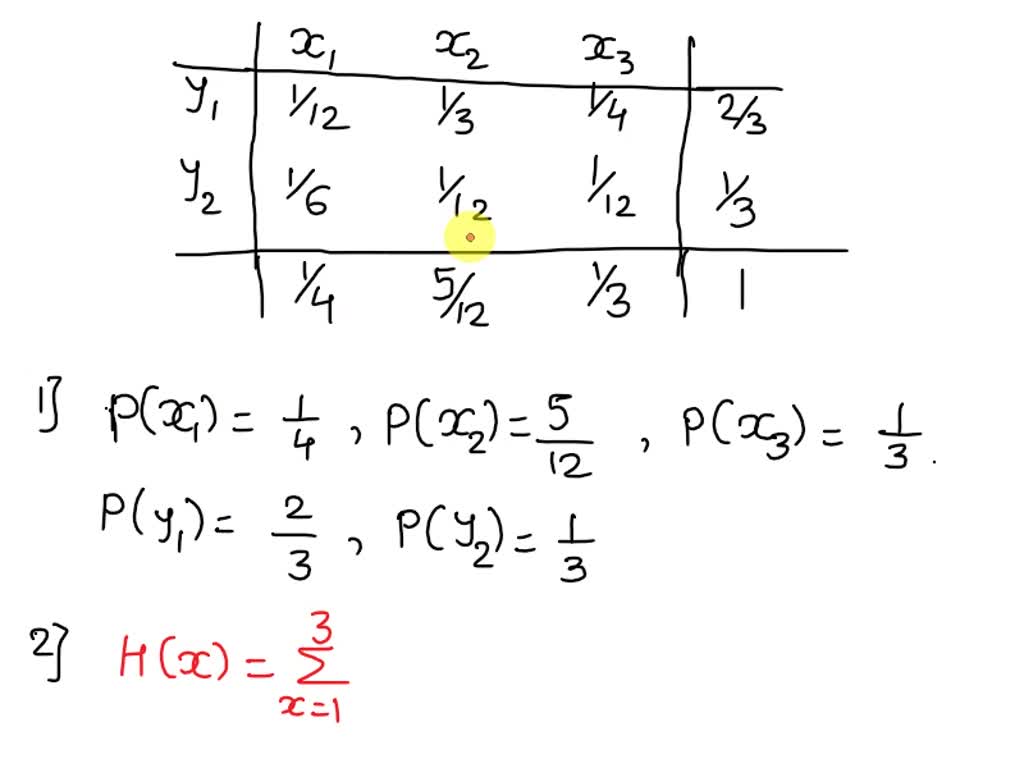 x₁ x₂ x₃
y₁ 1/12 1/3 1/4 2/3
y₂ 1/6 1/12 1/12 1/3
1/4 5/12 1/3 1
1] P(x₁) = 1/4 , P(x₂) = 5/12 , P(x₃) = 1/3 .
P(y₁) = 2/3 , P(y₂) = 1/3
2] H(x) = 3 Σ x=1